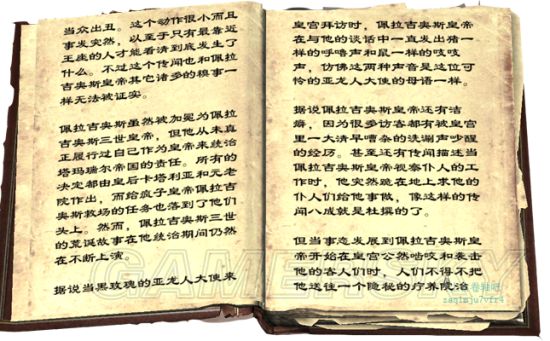 当众出丑。这个动作很小而且
事发突然，以至于只有最靠近
王座的人才能看清到底发生了
什么。不过这个传闻也和佩拉
吉奥斯皇帝其它诸多的糗事一
样无法被证实。
佩拉吉奥斯虽然被加冕为佩拉
吉奥斯三世皇帝，但他从未真
正履行过自己作为皇帝来统治
塔玛瑞尔帝国的责任。所有的
决定都由皇后卡塔利亚和元老
院作出，而给疯子皇帝佩拉吉
奥斯救场的任务也落到了他们
头上。然而，佩拉吉奥斯三世
的荒诞故事在他统治期间仍然
在不断上演。
据说当黑玫瑰的亚龙人大使来
皇宫拜访时，佩拉吉奥斯皇帝
在与他的谈话中一直发出猪一
样的呼噜声和鼠一样的吱吱
声，仿佛这两种声音是这位可
怜的亚龙人大使的母语一样。
据说佩拉吉奥斯皇帝还有洁
癖，因为很多访客都有被皇宫
里一大清早嘈杂的洗涮声吵醒
的经历。甚至还有传闻描述当
佩拉吉奥斯皇帝视察仆人的工
作时，他突然跪在地上求他的
仆人们给他事做，像这样的传
闻八成就是杜撰的了。
但当事态发展到佩拉吉奥斯皇
帝开始在皇宫公然啃咬和袭击
他的客人们时，人们不得不把
他送往一个隐秘的疗养院治
GAMERSKY
卷轴吧
zaqimju7vfr4